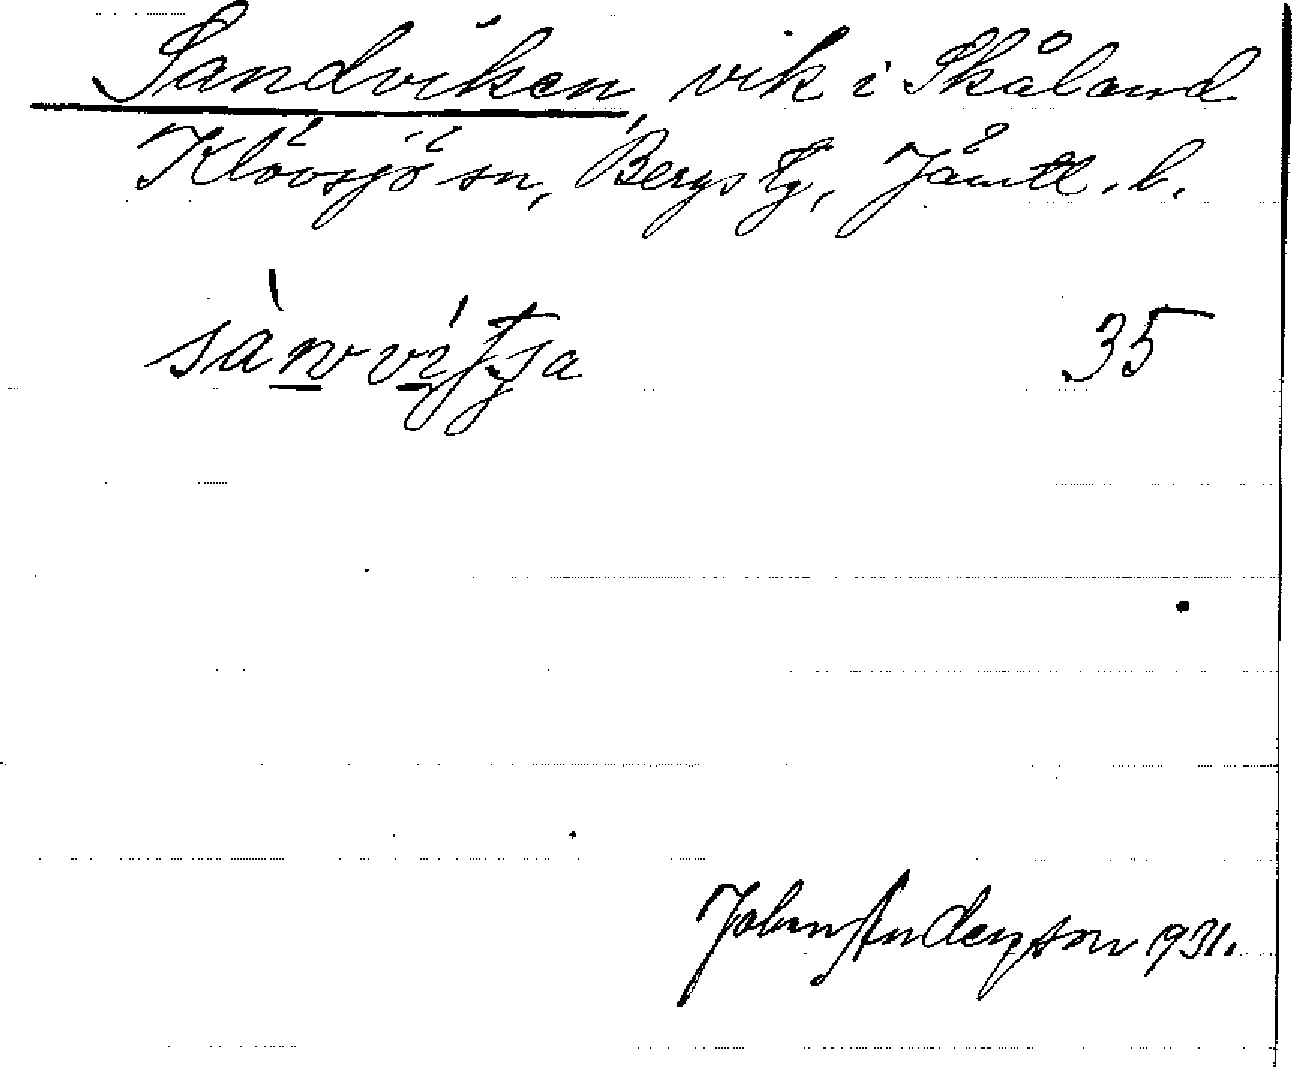 Sandviken, vik i Skåland
Klövsjö sn, Bergs tg, Jämtl. l.
35
John Anderson 1931.